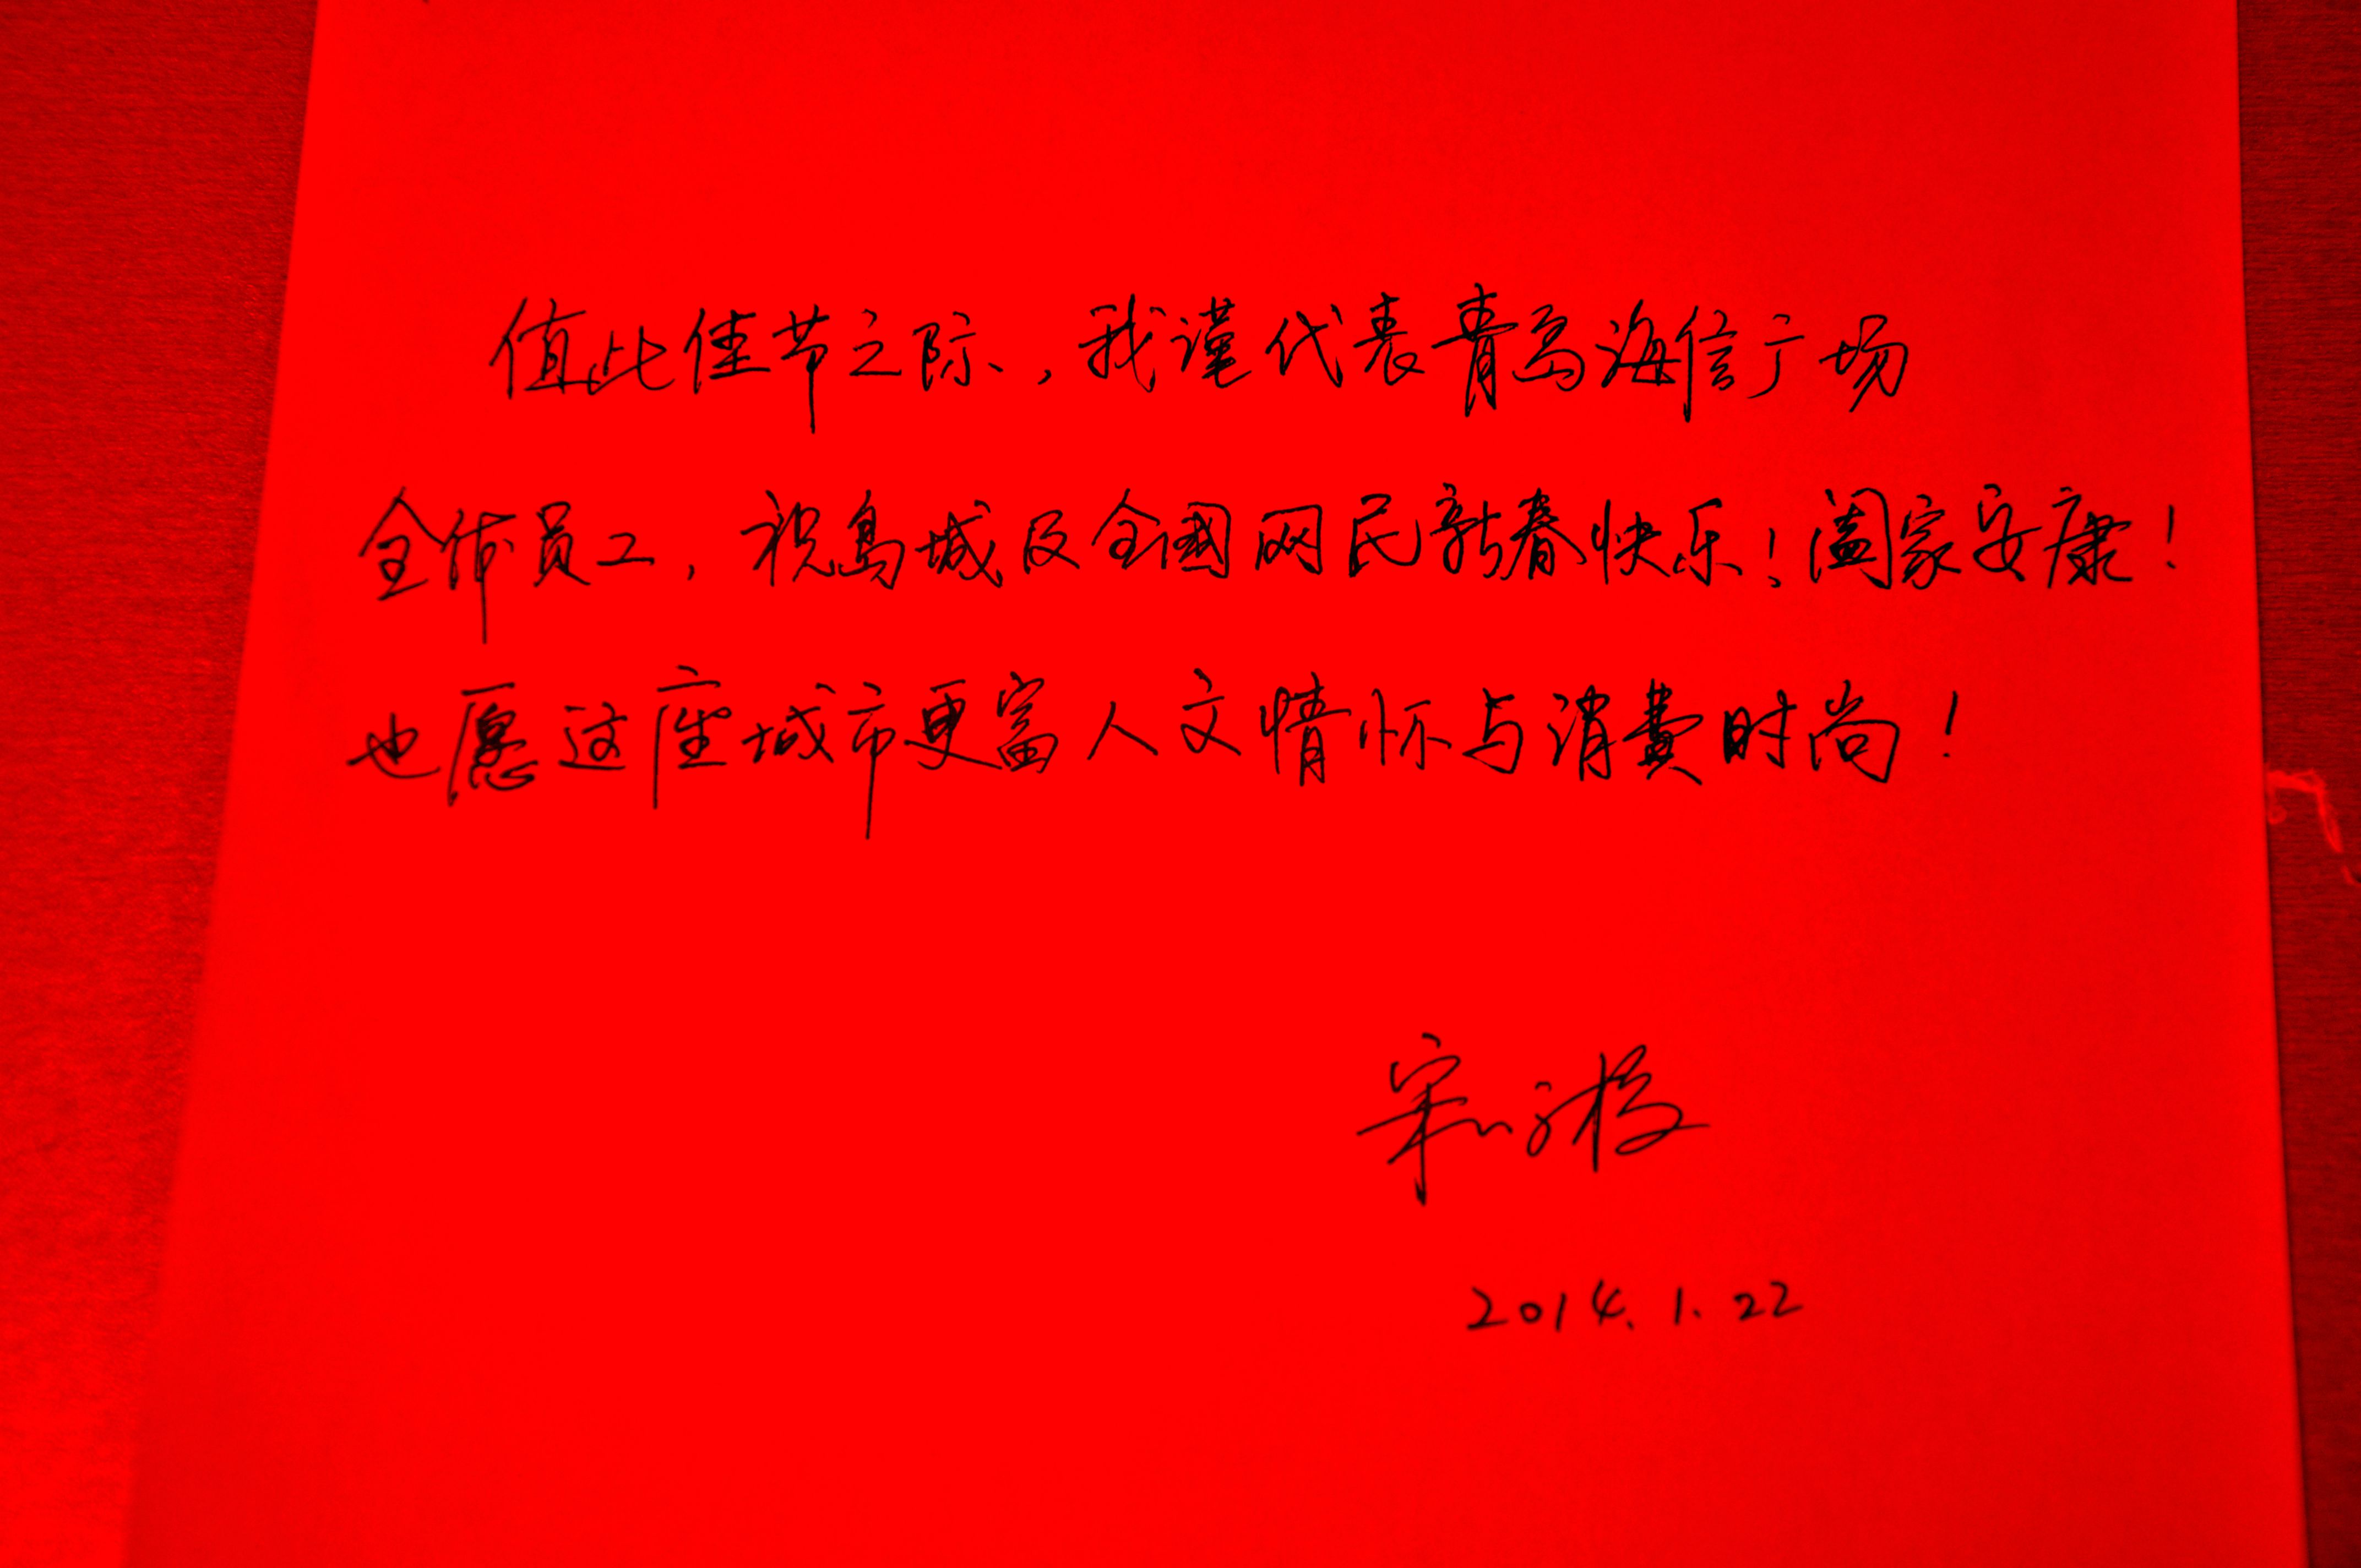 值此佳节之际，我谨代表青岛海信广场
全体员工，祝岛城及全國网民新春快乐！阖家安康！
也愿这座城市更富人文情怀与消费时尚！
2014.1.22